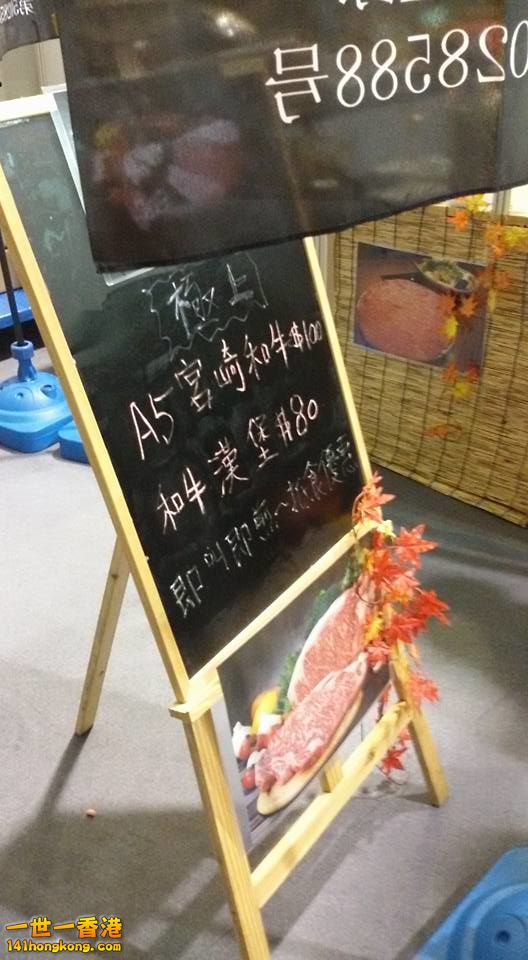 028588号
極上
A5宮崎和牛$100
和牛漢堡$80
即叫即煎~抵食優惠
一世一香港
141hongkong.com